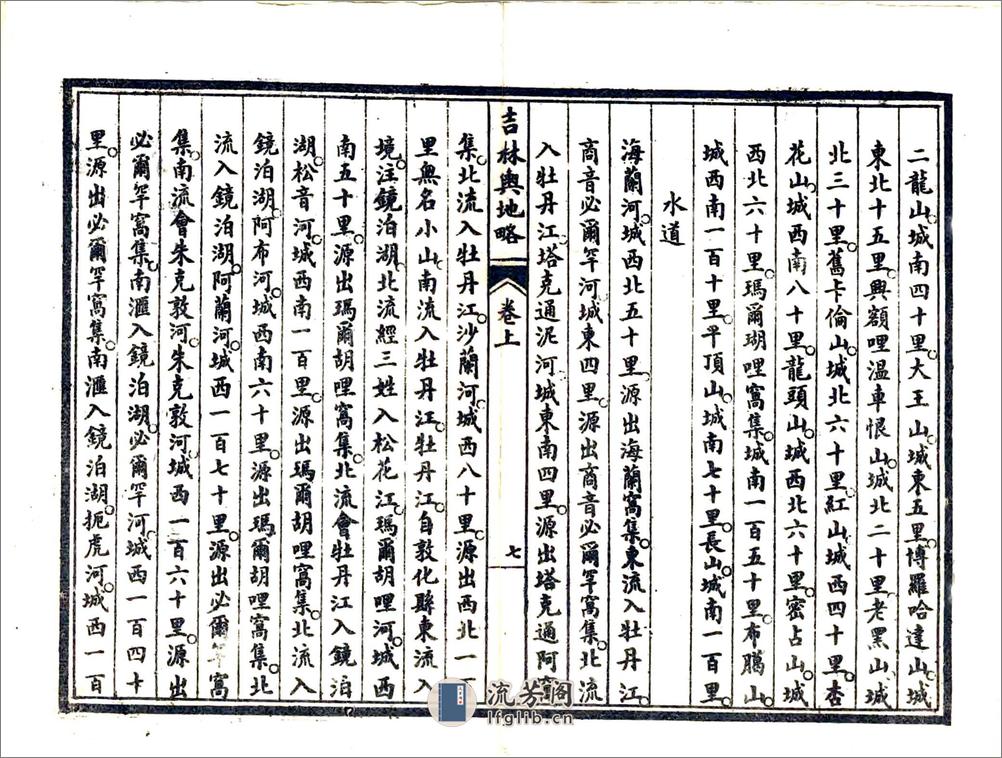 二龍山城南四十里大王山城東五里博羅哈達山城
東北十五里興額哩溫車恨山城北二十里老黑山城
北三十里舊卡倫山城北六十里紅山城西四十里杏
花山城西南八十里龍頭山城西北六十里密占山城
西北六十里瑪爾瑚哩窩集城南一百五十里布臈山
城西南一百十里平頂山城南七十里長山城南一百里
水道
海蘭河城西北五十里源出海蘭窩集東流入牡丹江
商音必爾罕河城東四里源出商音必爾罕窩集北流
入牡丹江塔克通泥河城東南四里源出塔克通阿窩
吉林輿地略
卷上
七
集北流入牡丹江沙蘭河城西八十里源出西北一百
里無名小山南流入牡丹江牡丹江自敦化縣東流入
境注鏡泊湖北流經三姓入松花江瑪爾胡哩河城西
南五十里源出瑪爾胡哩窩集北流會牡丹江入鏡泊
湖松音河城西南一百里源出瑪爾胡哩窩集北流入
鏡泊湖阿布河城西南六十里源出瑪爾胡哩窩集北
流入鏡泊湖阿蘭河城西一百七十里源出必爾罕窩
集南流會朱克敦河朱克敦河城西一百六十里源出
必爾罕窩集南滙入鏡泊湖必爾罕河城西一百四十
里源出必爾罕窩集南滙入鏡泊湖扼虎河城西一百
流芳閣
lfglib.cn